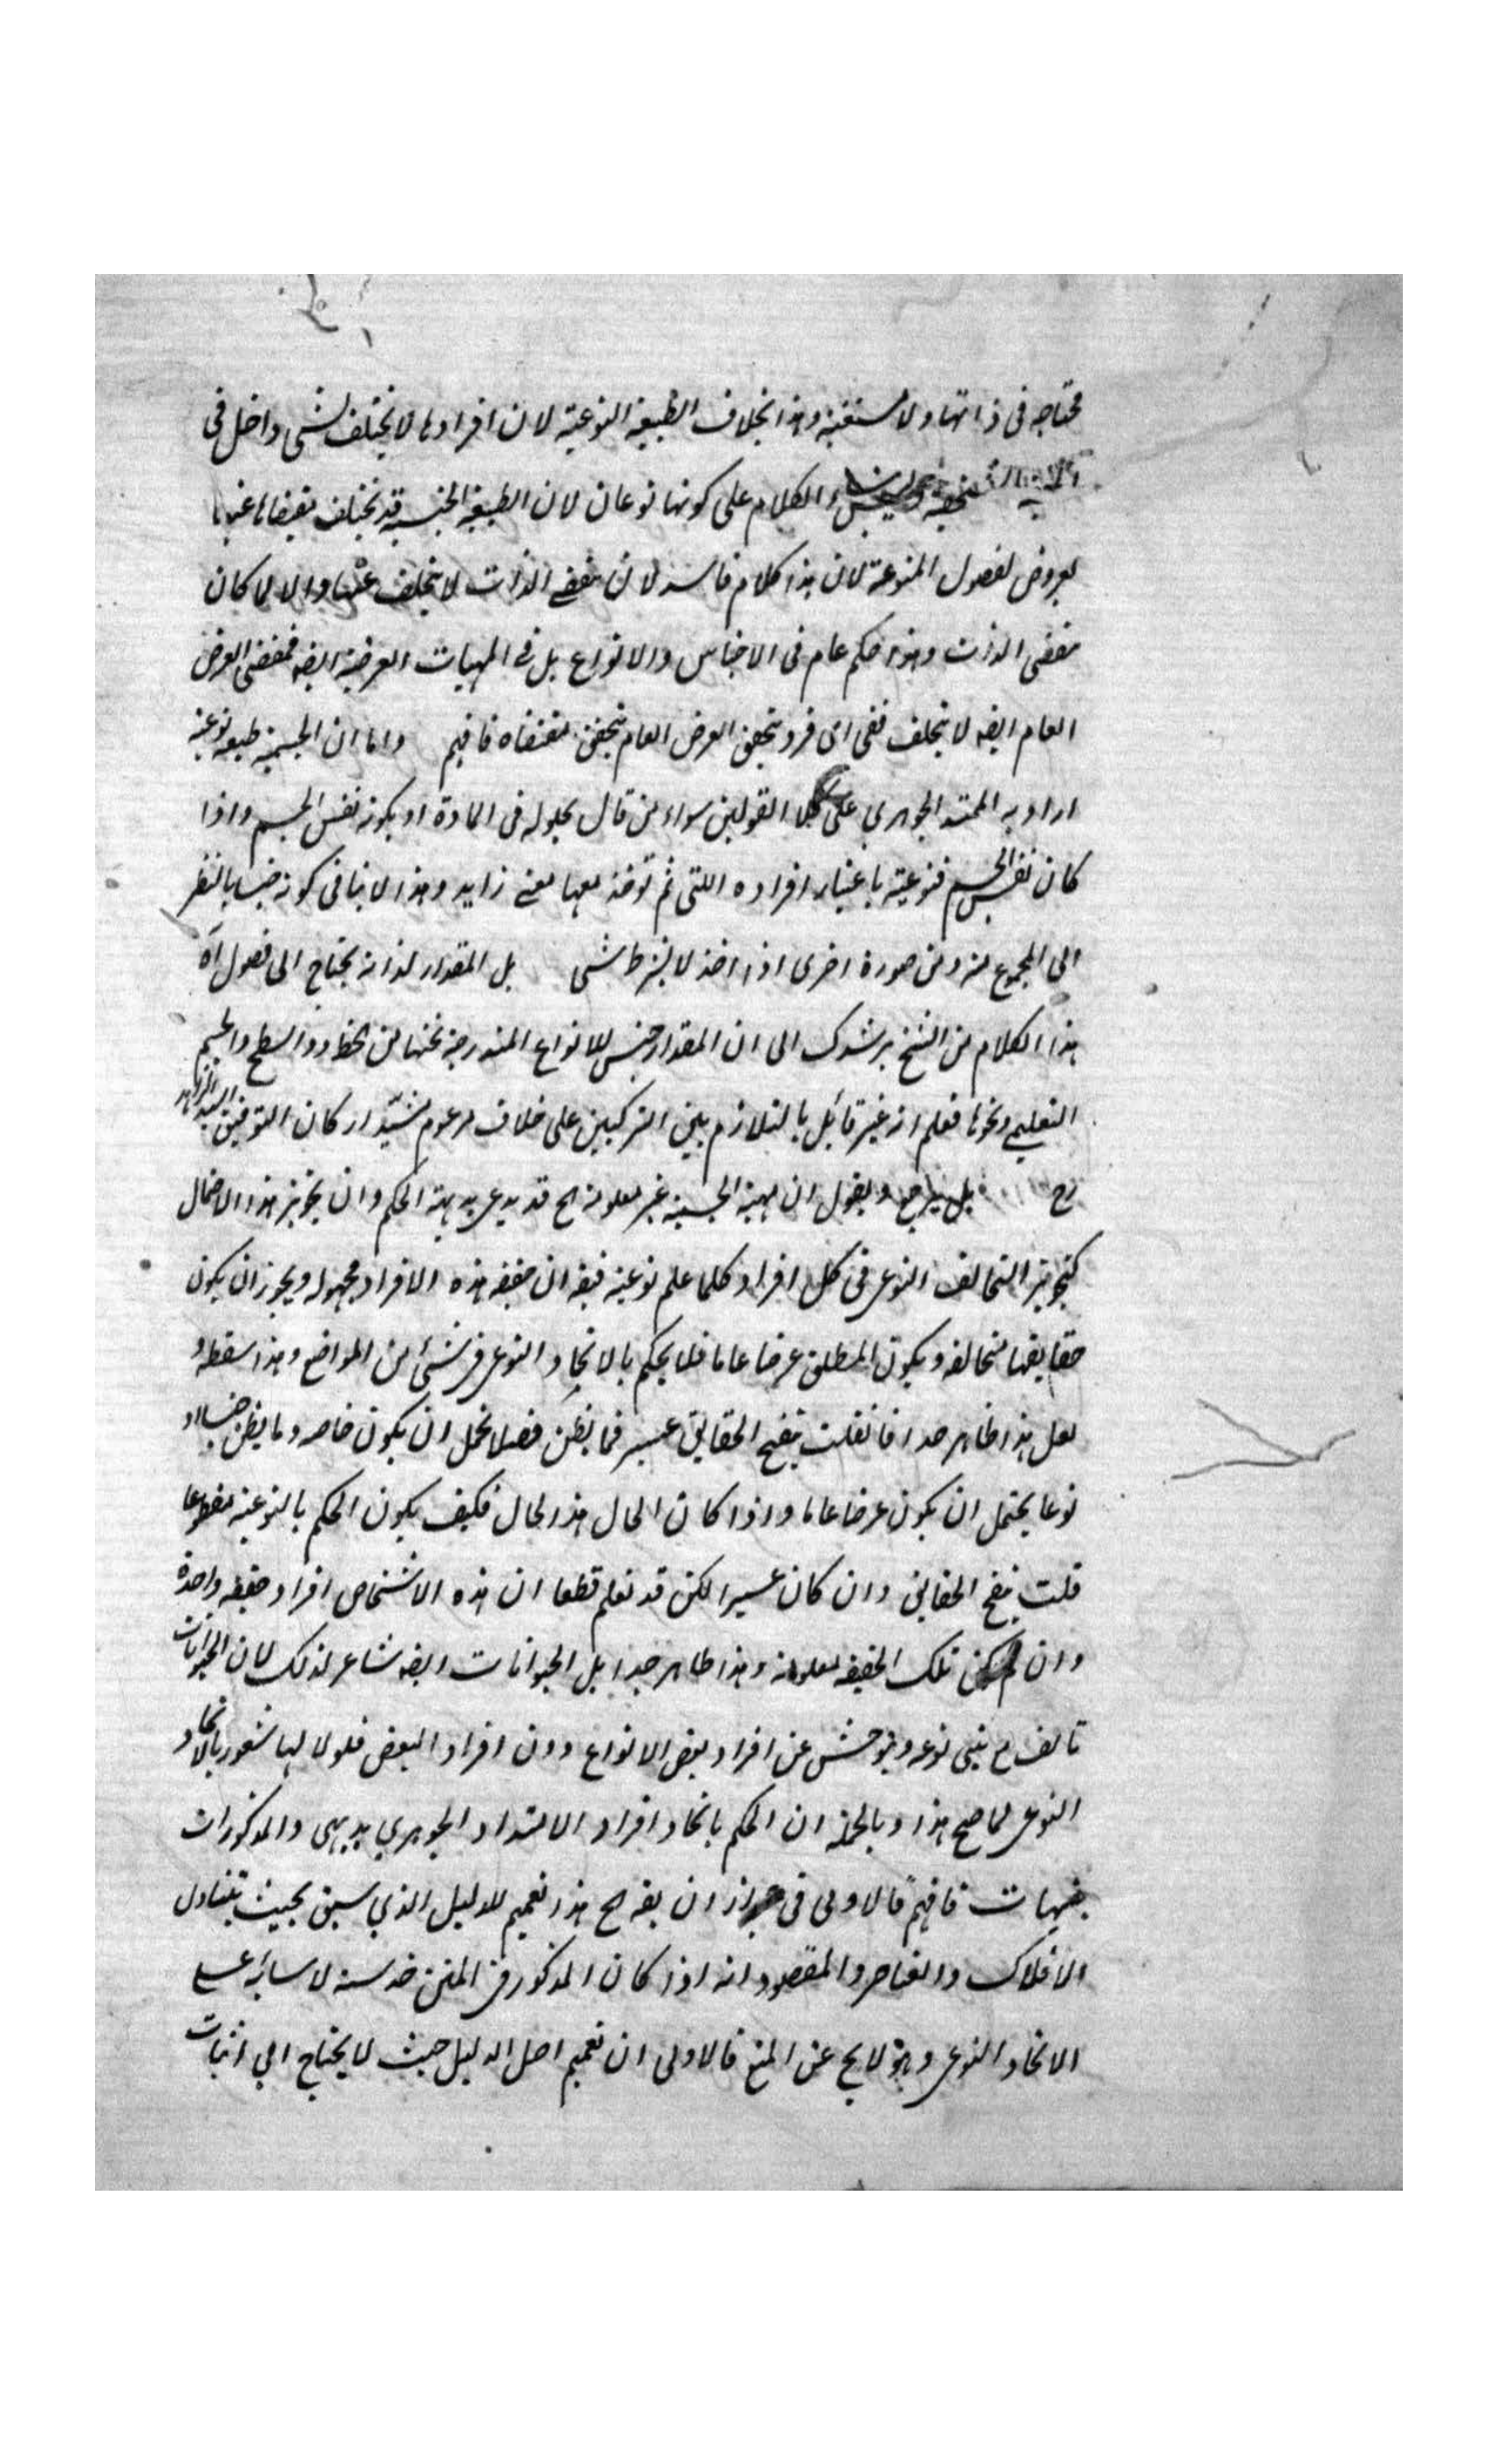 محتاجه فى ذاتها ولا مستغنيه وهذا بخلاف الطبيعة النوعية لان افرادها لا يختلف بشى داخل فى
الكلام على كونها نوعا لان الطبيعة الجنسية قد تختلف مقتضاها
بعروض لفصول المنوعة لان هذا كلام فاسد لان مقتضے الذات لا يتخلف عنها والا لما كان
مقتضى الذات وهذا حكم عام فى الاجناس والانواع بل فے المهيات العرضية ايضه فمقتضى العرض
العام ايضه لا يتخلف ففى اى فرد يتحقق العرض العام يتحقق مقتضاه فافهم واما ان الجسمية طبيعة نوعية
اراد به الممتد الجوهري على كلا القولين سواء من قال بحلوله فى المادة او بكونه نفس الجسم واذا
كان نفس الجسم فنوعية باعتبار افراده اللتى لم توخذ معها معنے زايد وهذا لا ينافى كونه جنسا بالنظر
الى المجموع منه ومن صورة اخرى اذا اخذ لا بشرط شى بل المقدار لذاته يحتاج الى فصول آه
هذا الكلام من الشيخ يرشدك الى ان المقدار جنس للانواع المندرجة تحتها من الخط والسطح والجسم
التعليمي ونحوها فعلم انه غير قائل بالتلازم بين التركيبين على خلاف مزعوم مشيّد اركان التوفيق السيد الزاهد
رح بل يرجع ويقول ان مهية الجسمية غير معلومة اح قد يدعى بديهة الحكم وان تجويز هذا الاحتمال
كتجويز التخالف النوعى فى كل افراد كلما علم نوعيته فيقه ان حقيقة هذه الافراد مجهوله ويجوز ان يكون
حقايقها متخالفه ويكون المطلق عرضا عاما فلا يحكم بالاتحاد النوعى فى شئ من المواضع وهذا سفسطه و
لعل هذا ظاهر جدا فانقلت تنقيح الحقايق عسير فما يظن فصلا يحتمل ان يكون خاصه وما يظن جنسا او
نوعا يحتمل ان يكون عرضا عاما واذا كان الحال هذا لحال فكيف يكون الحكم بالنوعية مقطوعا
قلت تنقيح الحقايق وان كان عسيرا لكن قد نعلم قطعا ان هذه الاشخاص افراد حقيقه واحدة
وان لم يكن تلك الحقيقه معلومة وهذا ظاهر جدا بل الحيوانات ايضه شاعر لذلك لان الحيوانات
تالف مع بنى نوعه ويتوحش عن افراد بعض الانواع دون افراد البعض فلولا لها شعور بالاتحاد
النوعى لما صح هذا وبالجملة ان الحكم باتحاد افراد الامتداد الجوهري بديهى والمذكورات
تنبيهات فافهم قالاولى فى ان يقه اح هذا تعميم للدليل الذي سبق بحيث يتناول
الافلاك والعناصر والمقصود انه اذا كان المذكور فى المتن حدسه لاسائه علے
الاتحاد النوعى وهو لا يح عن المنع فالاولى ان تعميم اصل الدليل حيث لا يحتاج الي اثبات